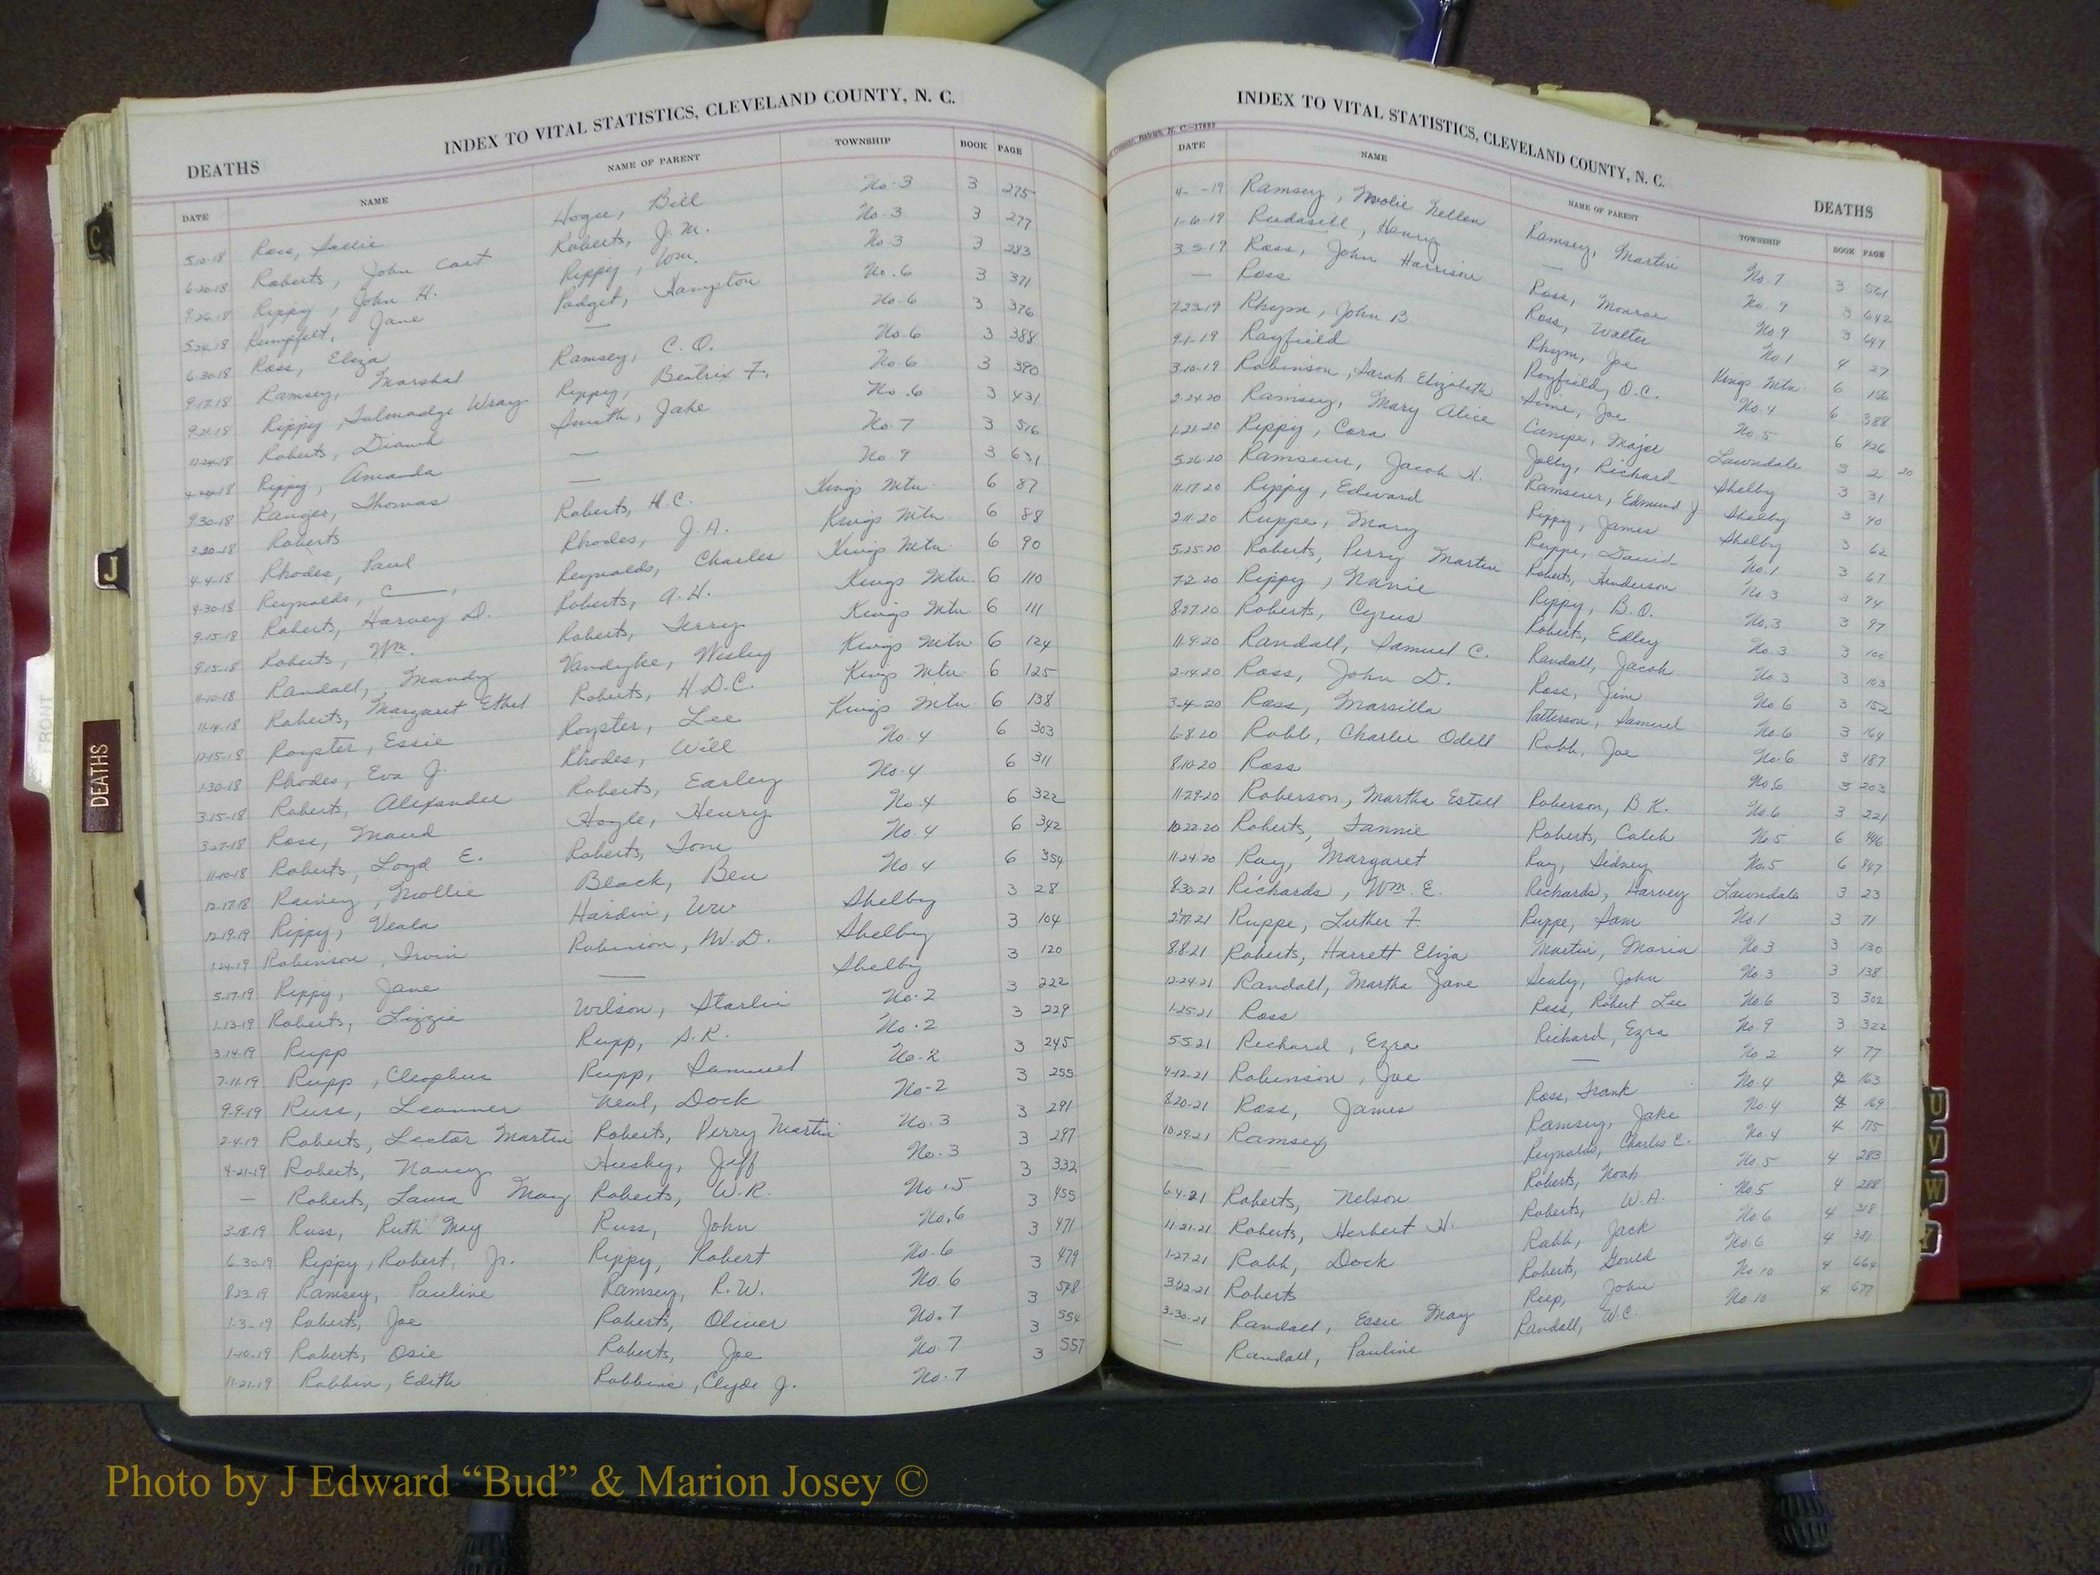 INDEX TO VITAL STATISTICS, CLEVELAND COUNTY, N. C.
DEATHS
DATE NAME NAME OF PARENT TOWNSHIP BOOK PAGE
5-10-18 Ross, Sallie Hogue, Bill No. 3 3 275
6-20-18 Roberts, John Cart Roberts, J. M. No. 3 3 277
7-26-18 Rippy, John H. Rippy, Wm. No. 3 3 283
5-24-18 Rumpfelt, Jane Padget, Hampton No. 6 3 371
6-30-18 Ross, Eliza — No. 6 3 376
9-17-18 Ramsey, Marshal Ramsey, C. O. No. 6 3 388
9-21-18 Rippy, Talmadge Wray Rippy, Beatrix F. No. 6 3 390
12-24-18 Roberts, Diannah Smith, Jake No. 6 3 431
4-24-18 Rippy, Amanda — No. 7 3 516
9-30-18 Ranger, Thomas — No 9 3 631
3-20-18 Roberts Roberts, H. C. Kings Mtn. 6 87
4-4-18 Rhodes, Paul Rhodes, J. A. Kings Mtn 6 88
4-30-18 Reynolds, C——, Reynolds, Charles Kings Mtn. 6 90
9-15-18 Roberts, Harvey D. Roberts, A. H. Kings Mtn. 6 110
9-15-18 Roberts, Wm. Roberts, Terry Kings Mtn. 6 111
11-10-18 Randall, Mandy Vandyke, Wesley Kings Mtn 6 124
11-14-18 Roberts, Margaret Ethel Roberts, H. D. C. Kings Mtn. 6 125
12-15-18 Royster, Essie Royster, Lee Kings Mtn. 6 138
1-30-18 Rhodes, Eva J. Rhodes, Will No. 4 6 303
3-15-18 Roberts, Alexander Roberts, Earley No. 4 6 311
3-27-18 Ross, Maud Hoyle, Henry No. 4 6 322
11-10-18 Roberts, Loyd E. Roberts, Tom No. 4 6 342
12-17-18 Rainey, Mollie Black, Ben No. 4 6 354
12-19-19 Rippy, Veala Hardin, Wm Shelby 3 28
1-24-19 Robinson, Irvin Robinson, M. D. Shelby 3 104
5-17-19 Rippy, Jane — Shelby 3 120
1-13-19 Roberts, Lizzie Wilson, Starlin No. 2 3 222
3-14-19 Rupp Rupp, S. R. No. 2 3 229
7-11-19 Rupp, Cleophus Rupp, Samuel No. 2 3 245
9-9-19 Russ, Leanner Neal, Dock No-2 3 255
2-4-19 Roberts, Lector Martin Roberts, Perry Martin No. 3 3 291
4-21-19 Roberts, Nancy Huesky, Jeff No. 3 3 297
— Roberts, Laura May Roberts, W. R. No. 5 3 332
3-18-19 Russ, Ruth May Russ, John No. 6 3 455
6-30-19 Rippy, Robert, Jr. Rippy, Robert No. 6 3 471
8-23-19 Ramsey, Pauline Ramsey, R. W. No. 6 3 479
1-3-19 Roberts, Joe Roberts, Oliver No. 7 3 548
1-10-19 Roberts, Osie Roberts, Joe No. 7 3 554
11-21-19 Robbin, Edith Robbins, Clyde J. No. 7 3 557
INDEX TO VITAL STATISTICS, CLEVELAND COUNTY, N. C.
DEATHS
DATE NAME NAME OF PARENT TOWNSHIP BOOK PAGE
4- -19 Ramsey, Mvolie Nellen Ramsey, Martin No. 7 3 561
1-6-19 Rudasill, Henry — No. 9 3 642
3-5-19 Ross, John Harrison Ross, Monroe No 9 3 647
— Ross Ross, Walter No. 1 4 27
7-23-19 Rhym, John B Rhym, Joe Kings Mtn. 6 156
9-1-19 Rayfield Rayfield, O. C. No. 4 6 388
3-10-19 Robinson, Sarah Elizabeth Sims, Joe No 5 6 426
2-24-20 Ramsey, Mary Alice Campe, Major Lawndale 3 2 20
1-21-20 Rippy, Cora Jolly, Richard Shelby 3 31
5-26-20 Ramseur, Jacob H. Ramseur, Edmund J. Shelby 3 40
11-17-20 Rippy, Edward Rippy, James Shelby 3 62
2-11-20 Ruppe, Mary Ruppe, David No. 1 3 67
5-25-20 Roberts, Perry Martin Roberts, Henderson No 3 3 94
7-2-20 Rippy, Nannie Rippy, B. O. No. 3 3 97
8-27-20 Roberts, Cyrus Roberts, Edley No. 3 3 100
11-9-20 Randall, Samuel C. Randall, Jacob No. 3 3 103
2-14-20 Ross, John D. Ross, Jim No 6 3 152
3-4-20 Ross, Marsilla Patterson, Samuel No. 6 3 164
6-8-20 Robb, Charlie Odell Robb, Joe No. 6 3 187
8-10-20 Ross No. 6 3 203
11-29-20 Roberson, Martha Estell Roberson, B. K. No. 6 3 221
10-22-20 Roberts, Fannie Roberts, Caleb No. 5 6 446
11-24-20 Ray, Margaret Ray, Sidney No. 5 6 447
8-30-21 Richards, Wm. E. Richards, Harvey Lawndale 3 23
2-17-21 Ruppe, Luther F. Ruppe, Sam No. 1 3 71
8-8-21 Roberts, Harrett Eliza Martin, Maria No 3 3 130
12-24-21 Randall, Martha Jane Sealy, John No. 3 3 138
1-25-21 Ross Ross, Robert Lee No. 6 3 302
5-5-21 Richard, Ezra Richard, Ezra No. 9 3 322
4-12-21 Robinson, Joe — No 2 4 77
8-20-21 Ross, James Ross, Frank No. 4 4 163
10-29-21 Ramsey Ramsey, Jake No. 4 4 169
— — Reynolds, Charles C. No. 4 4 175
6-4-21 Roberts, Nelson Roberts, Noah No. 5 4 283
11-21-21 Roberts, Herbert H. Roberts, W. A. No 5 4 288
1-27-21 Robb, Dock Robb, Jack No 6 4 318
3-22-21 Roberts Roberts, Gould No 6 4 381
3-30-21 Randall, Essie May Reep, John No 10 4 664
— Randall, Pauline Randall, W. C. No 10 4 677
C
J
DEATHS
FRONT
U
V
W
Y
Photo by J Edward “Bud” & Marion Josey ©